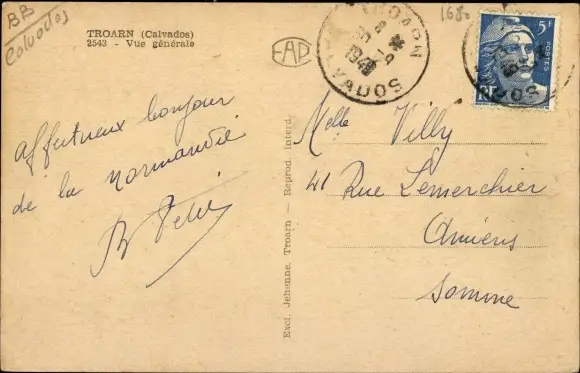 BB
Calvados
TROARN (Calvados)
2543 - Vue générale
EAP
TROARN
1949
CALVADOS
168
5F
POSTES
RF
affectueux bonjour
de la Normandie
Melle Villy
41 Rue Lemerchier
Amiens
Somme
Excl. Jehenne, Troarn — Reprod. Interd.